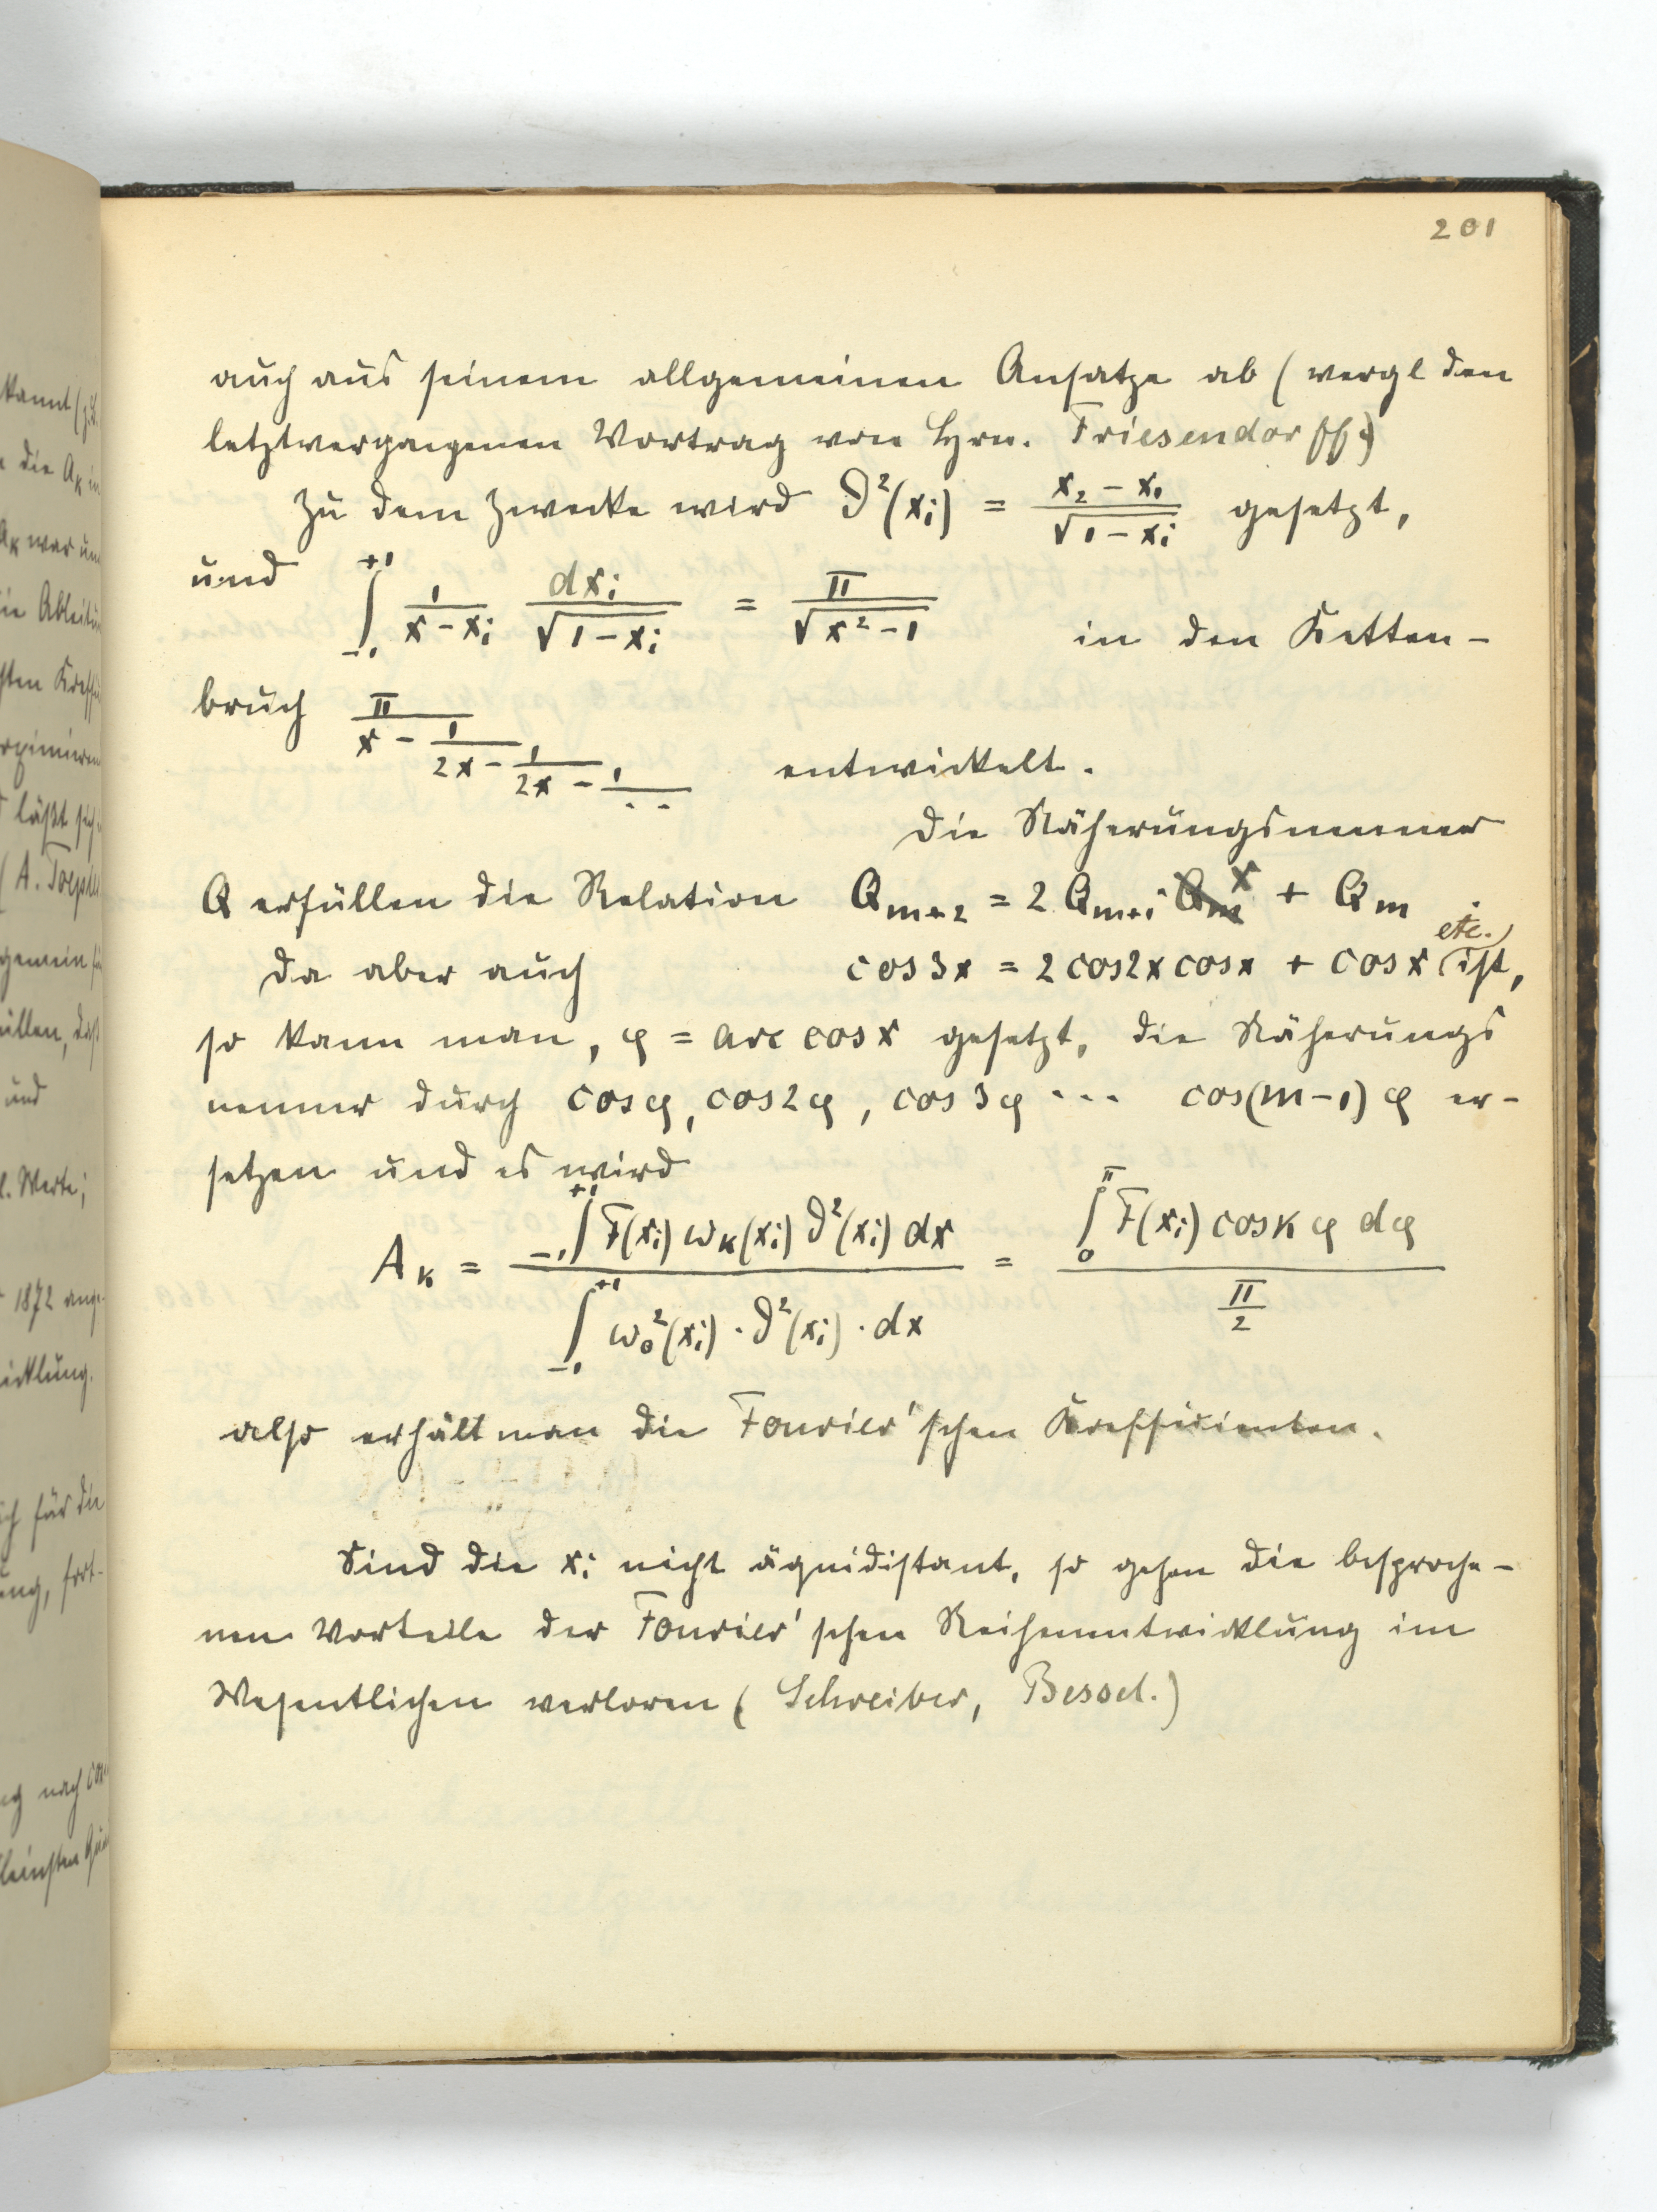 201
auch aus seinem allgemeinen Ansatze ab (vergl den
letztvergangenen Vortrag von Hrn. Friesendorff.)
Zu dem Zwecke wird ϑ²(xᵢ) = (x₂ − x₁)/√(1 − xᵢ) gesetzt,
und ∫₋₁⁺¹ 1/(x − xᵢ) dxᵢ/√(1 − xᵢ) = π/√(x² − 1) in den Ketten-
bruch π/(x − 1/(2x − 1/(2x − 1/(. .)))) entwickelt.
Die Näherungsnenner
Q erfüllen die Relation Qₘ₊₂ = 2 Qₘ₊₁ · x + Qₘ .
Da aber auch cos 3x = 2 cos 2x cos x + cos x (etc.) ist,
so kann man, φ = arc cos x gesetzt, die Näherungs
nenner durch cos φ, cos 2φ, cos 3φ ··· cos(m−1)φ er-
setzen und es wird
Aₖ = ∫₋₁⁺¹ F(xᵢ) ωₖ(xᵢ) ϑ²(xᵢ) dx / ∫₋₁⁺¹ ω₀²(xᵢ) · ϑ²(xᵢ) · dx = ∫₀^π F(xᵢ) cos k φ dφ / (π/2)
also erhält man die Fourier'schen Koeffizienten.
Sind die xᵢ nicht äquidistant, so gehen die besproche-
nen Vorteile der Fourier'schen Reihenentwicklung im
Wesentlichen verloren (Schreiber, Bessel.)